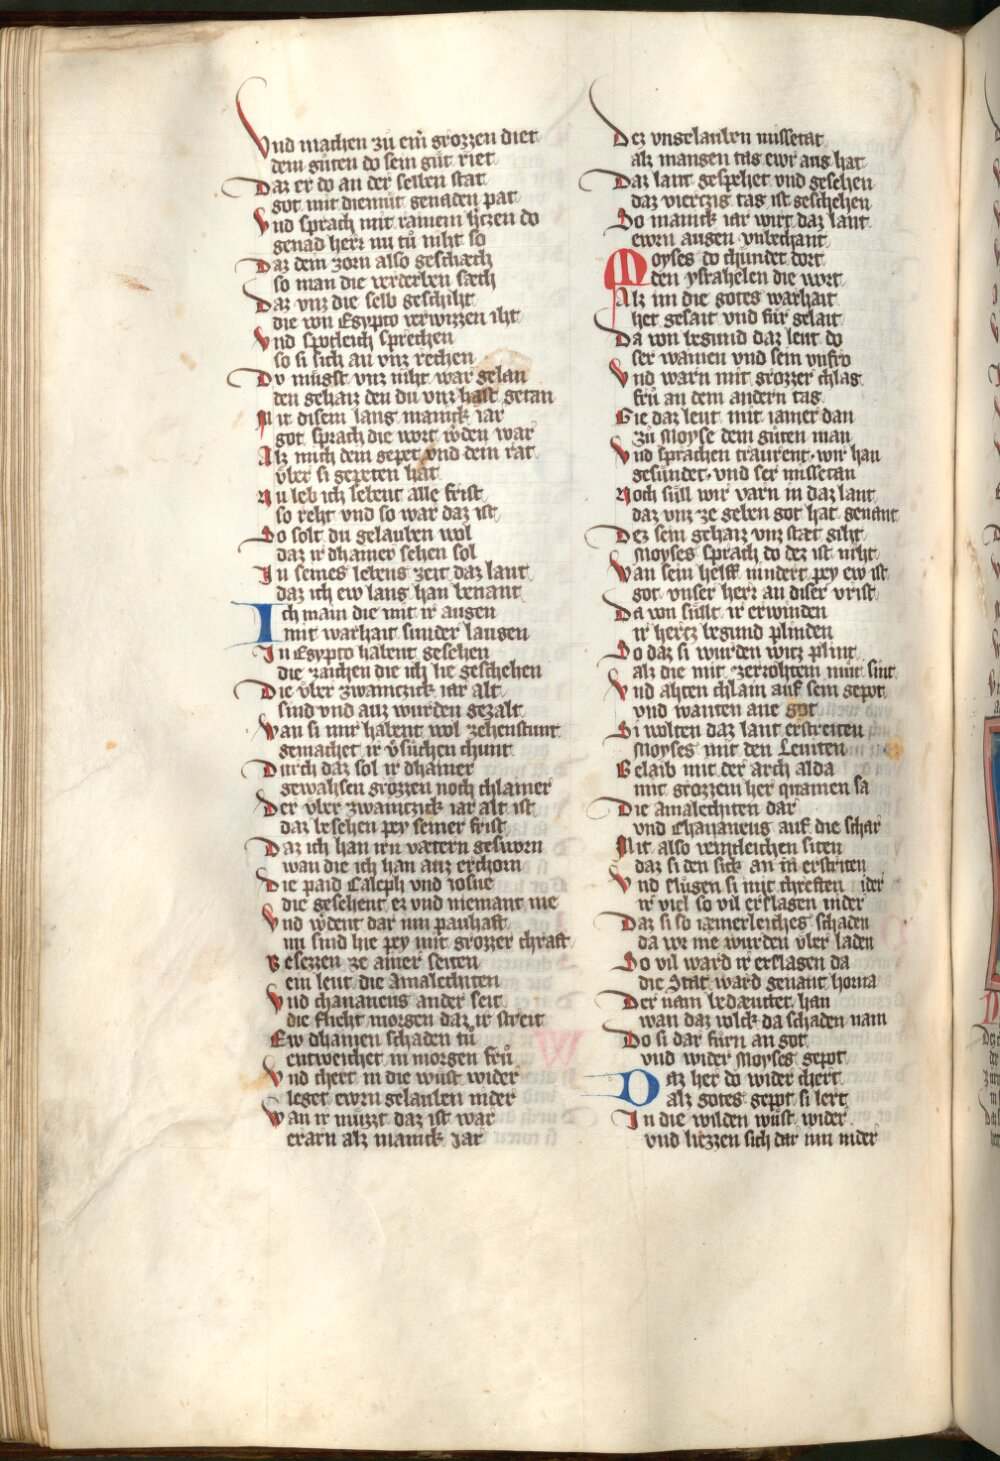 Vnd machen zu eim grozzen diet
dem guten do sein gut riet
Daz er do an der selben stat
got mit diemut genaden pat
Vnd sprach mit rainem hertzen do
genad herr nu tů niht so
Daz dein zorn also geschæch
so man die verderben sæch
Daz vnz die selb geschiht
die von Egypto verwizzen iht
Vnd spotleich sprechen
so si sich an vnz rechen
Dv mügst vnz niht war gelan
den gehaiz den du vnz hast getan
Mit disem lang manick iar
got sprach die wort wden war
Alz mich dem gepet vnd dem rat
vber si gepeten hat
Nu leb ich lebent alle frist
so reht vnd so war daz ist
So solt du gelauben wol
daz ir dhainer sehen sol
In seines lebens zeit daz lant
daz ich ew lang han benant
Ich main die mit ir augen
mit warhait sunder laugen
In Egypto habent gesehen
die zaichen die ich lie geschehen
Die vber zwaintzick iar alt
sind vnd auz wurden gezalt
Wan si mir habent wol zehenstunt
gemachet ir vsuchen chunt
Durch daz sol ir dhainer
gewahsen grozzen noch chlainer
Der vber zwaintzick iar alt ist
daz besehen pey seiner frist
Daz ich han irn vætern gesworn
wan die ich han auz erchorn
Die paid Caleph vnd iosue
die gesehent ez vnd niemant me
Vnd wdent dar inn pauhaft
nu sind hie pey mit grozzer chraft
Besezzen ze ainer seiten
ein leut die Amalechiten
Vnd chananeus ander seit
die flieht morgen daz ir streit
Ew dhainen schaden tů
entweichet in morgen frů
Vnd chert in die wüst wider
leget ewrn gelauben nider
Wan ir müzzt daz ist war
erarn alz manick Jar
Dez vngelauben missetat
alz mangen tag ewr aug hat
Daz lant gespehet vnd gesehen
daz viertzig tag ist geschehen
So manick iar wirt daz lant
ewrn augen vnbechant
Moyses do chündet dort
den ysrahelen die wort
Alz im die gotes warhait
het gesait vnd für gelait
Da von begund daz leut do
ser wainen vnd sein vnfro
Vnd warn mit grozzer chlag
frů an dem andern tag
Gie daz leut mit iamer dan
zů Moyse dem gůten man
Vnd sprachen traurent wir han
gesundet vnd ser missetan
Noch süll wir varn in daz lant
daz vnz ze geben got hat genant
Dez sein gehaiz vnz stæt giht
Moyses sprach do dez ist niht
Wan sein helff nindert pey ew ist
got vnser herr an diser vrist
Da von süllt ir erwinden
ir hertz begund plinden
So daz si wurden witz plint
alz die mit zerrohtem můt sint
Vnd ahten chlain auf sein gepot
vnd wanten ane got
Si wolten daz lant erstreiten
Moyses mit den Leuiten
Belaib mit der arch alda
mit grozzem her quamen sa
Die amalechiten dar
vnd Chananeus auf die schar
Mit also veintleichen siten
daz si den sick an in erstriten
Vnd slůgen si mit chreften ider
ir viel so vil erslagen nider
Daz si so iæmerleiches schaden
da vor nie wurden vber laden
So vil ward ir erslagen da
die Stat ward genant horma
Der nam bedæutet han
wan daz volck da schaden nam
Do si dar fůrn an got
vnd wider Moyses gepot
Daz her do wider chert
alz gotes gepot si lert
In die wilden wüst wider
vnd liezzen sich dar inn nider